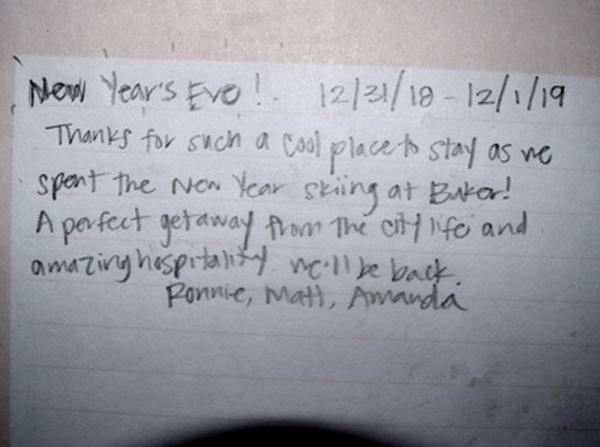 New Year's Eve! 12/31/18 - 12/1/19
Thanks for such a cool place to stay as we
spent the New Year skiing at Baker!
A perfect getaway from the city life and
amazing hospitality. we'll be back.
Ronnie, Matt, Amanda